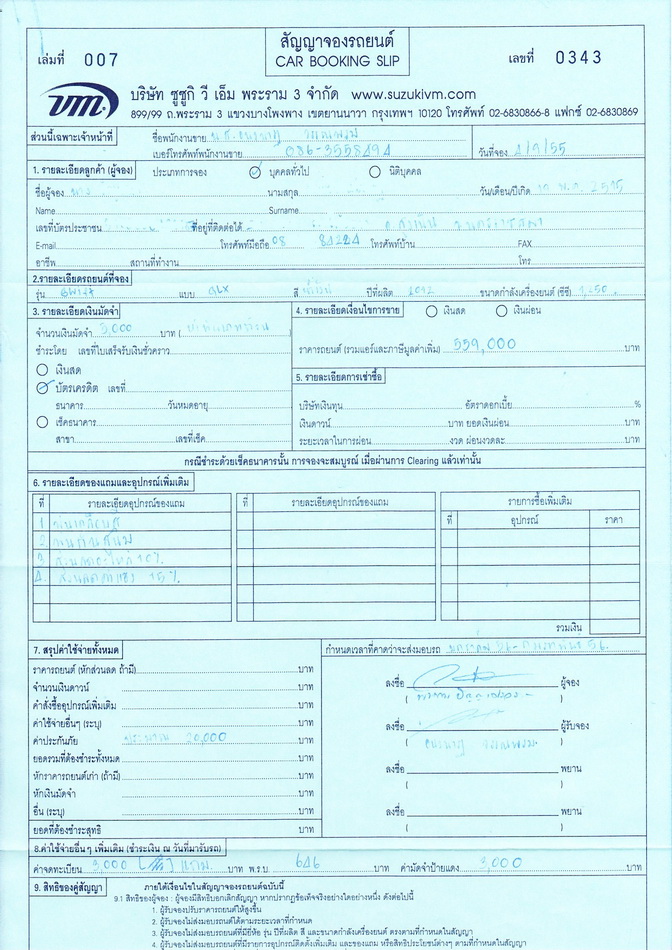 สัญญาจองรถยนต์
CAR BOOKING SLIP
เล่มที่ 007
เลขที่ 0343
vm.
บริษัท ซูซูกิ วี เอ็ม พระราม 3 จำกัด www.suzukivm.com
899/99 ถ.พระราม 3 แขวงบางโพงพาง เขตยานนาวา กรุงเทพฯ 10120 โทรศัพท์ 02-6830866-8 แฟกซ์ 02-6830869
ส่วนนี้เฉพาะเจ้าหน้าที่ ชื่อพนักงานขาย
เบอร์โทรศัพท์พนักงานขาย 086-3558494 วันที่จอง 4/9/55
1. รายละเอียดลูกค้า (ผู้จอง) ประเภทการจอง บุคคลทั่วไป นิติบุคคล
ชื่อผู้จอง นามสกุล วัน/เดือน/ปีเกิด
Name Surname
เลขที่บัตรประชาชน ที่อยู่ที่ติดต่อได้
E-mail โทรศัพท์มือถือ 08 81224 โทรศัพท์บ้าน FAX
อาชีพ สถานที่ทำงาน โทร
2.รายละเอียดรถยนต์ที่จอง
รุ่น SWIFT แบบ GLX สี ปีที่ผลิต 2012 ขนาดกำลังเครื่องยนต์ (ซีซี) 1,250
3. รายละเอียดเงินมัดจำ
จำนวนเงินมัดจำ 5,000 บาท ( )
ชำระโดย เลขที่ใบเสร็จรับเงินชั่วคราว
เงินสด
บัตรเครดิต เลขที่
ธนาคาร วันหมดอายุ
เช็คธนาคาร
สาขา เลขที่เช็ค
4. รายละเอียดเงื่อนไขการขาย เงินสด เงินผ่อน
ราคารถยนต์ (รวมแอร์และภาษีมูลค่าเพิ่ม) 559,000 บาท
5. รายละเอียดการเช่าซื้อ
บริษัทเงินทุน อัตราดอกเบี้ย %
เงินดาวน์ บาท ยอดเงินผ่อน บาท
ระยะเวลาในการผ่อน งวด ผ่อนงวดละ บาท
กรณีชำระด้วยเช็คธนาคารนั้น การจองจะสมบูรณ์ เมื่อผ่านการ Clearing แล้วเท่านั้น
6. รายละเอียดของแถมและอุปกรณ์เพิ่มเติม
ที่ รายละเอียดอุปกรณ์ของแถม
1
2
3 ส่วนลดอะไหล่ 10%
4. ส่วนลดค่าแรง 15%
ที่ รายละเอียดอุปกรณ์ของแถม
รายการซื้อเพิ่มเติม
ที่ อุปกรณ์ ราคา
รวมเงิน
7. สรุปค่าใช้จ่ายทั้งหมด
ราคารถยนต์ (หักส่วนลด ถ้ามี) บาท
จำนวนเงินดาวน์ บาท
ค่าสั่งซื้ออุปกรณ์เพิ่มเติม บาท
ค่าใช้จ่ายอื่นๆ (ระบุ) บาท
ค่าประกันภัย ประมาณ 20,000 บาท
ยอดรวมที่ต้องชำระทั้งหมด บาท
หักราคารถยนต์เก่า (ถ้ามี) บาท
หักเงินมัดจำ บาท
อื่น (ระบุ) บาท
ยอดที่ต้องชำระสุทธิ บาท
กำหนดเวลาที่คาดว่าจะส่งมอบรถ มกราคม 56 - กุมภาพันธ์ 56
ลงชื่อ ผู้จอง
( )
ลงชื่อ ผู้รับจอง
( )
ลงชื่อ พยาน
( )
ลงชื่อ พยาน
( )
8.ค่าใช้จ่ายอื่นๆ เพิ่มเติม (ชำระเงิน ณ วันที่มารับรถ)
ค่าจดทะเบียน 3,000 แถม บาท พ.ร.บ. 646 บาท ค่ามัดจำป้ายแดง 3,000 บาท
9. สิทธิของคู่สัญญา ภายใต้เงื่อนไขในสัญญาจองรถยนต์ฉบับนี้
9.1 สิทธิของผู้จอง : ผู้จองมีสิทธิบอกเลิกสัญญา หากปรากฏข้อเท็จจริงอย่างใดอย่างหนึ่ง ดังต่อไปนี้
1. ผู้รับจองปรับราคารถยนต์ให้สูงขึ้น
2. ผู้รับจองไม่ส่งมอบรถยนต์ได้ตามระยะเวลาที่กำหนด
3. ผู้รับจองไม่ส่งมอบรถยนต์ที่มียี่ห้อ รุ่น ปีที่ผลิต สี และขนาดกำลังเครื่องยนต์ ตรงตามที่กำหนดในสัญญา
4. ผู้รับจองไม่ส่งมอบรถยนต์ที่มีรายการอุปกรณ์ติดตั้งเพิ่มเติม และของแถม หรือสิทธิประโยชน์ต่างๆ ตามที่กำหนดในสัญญา